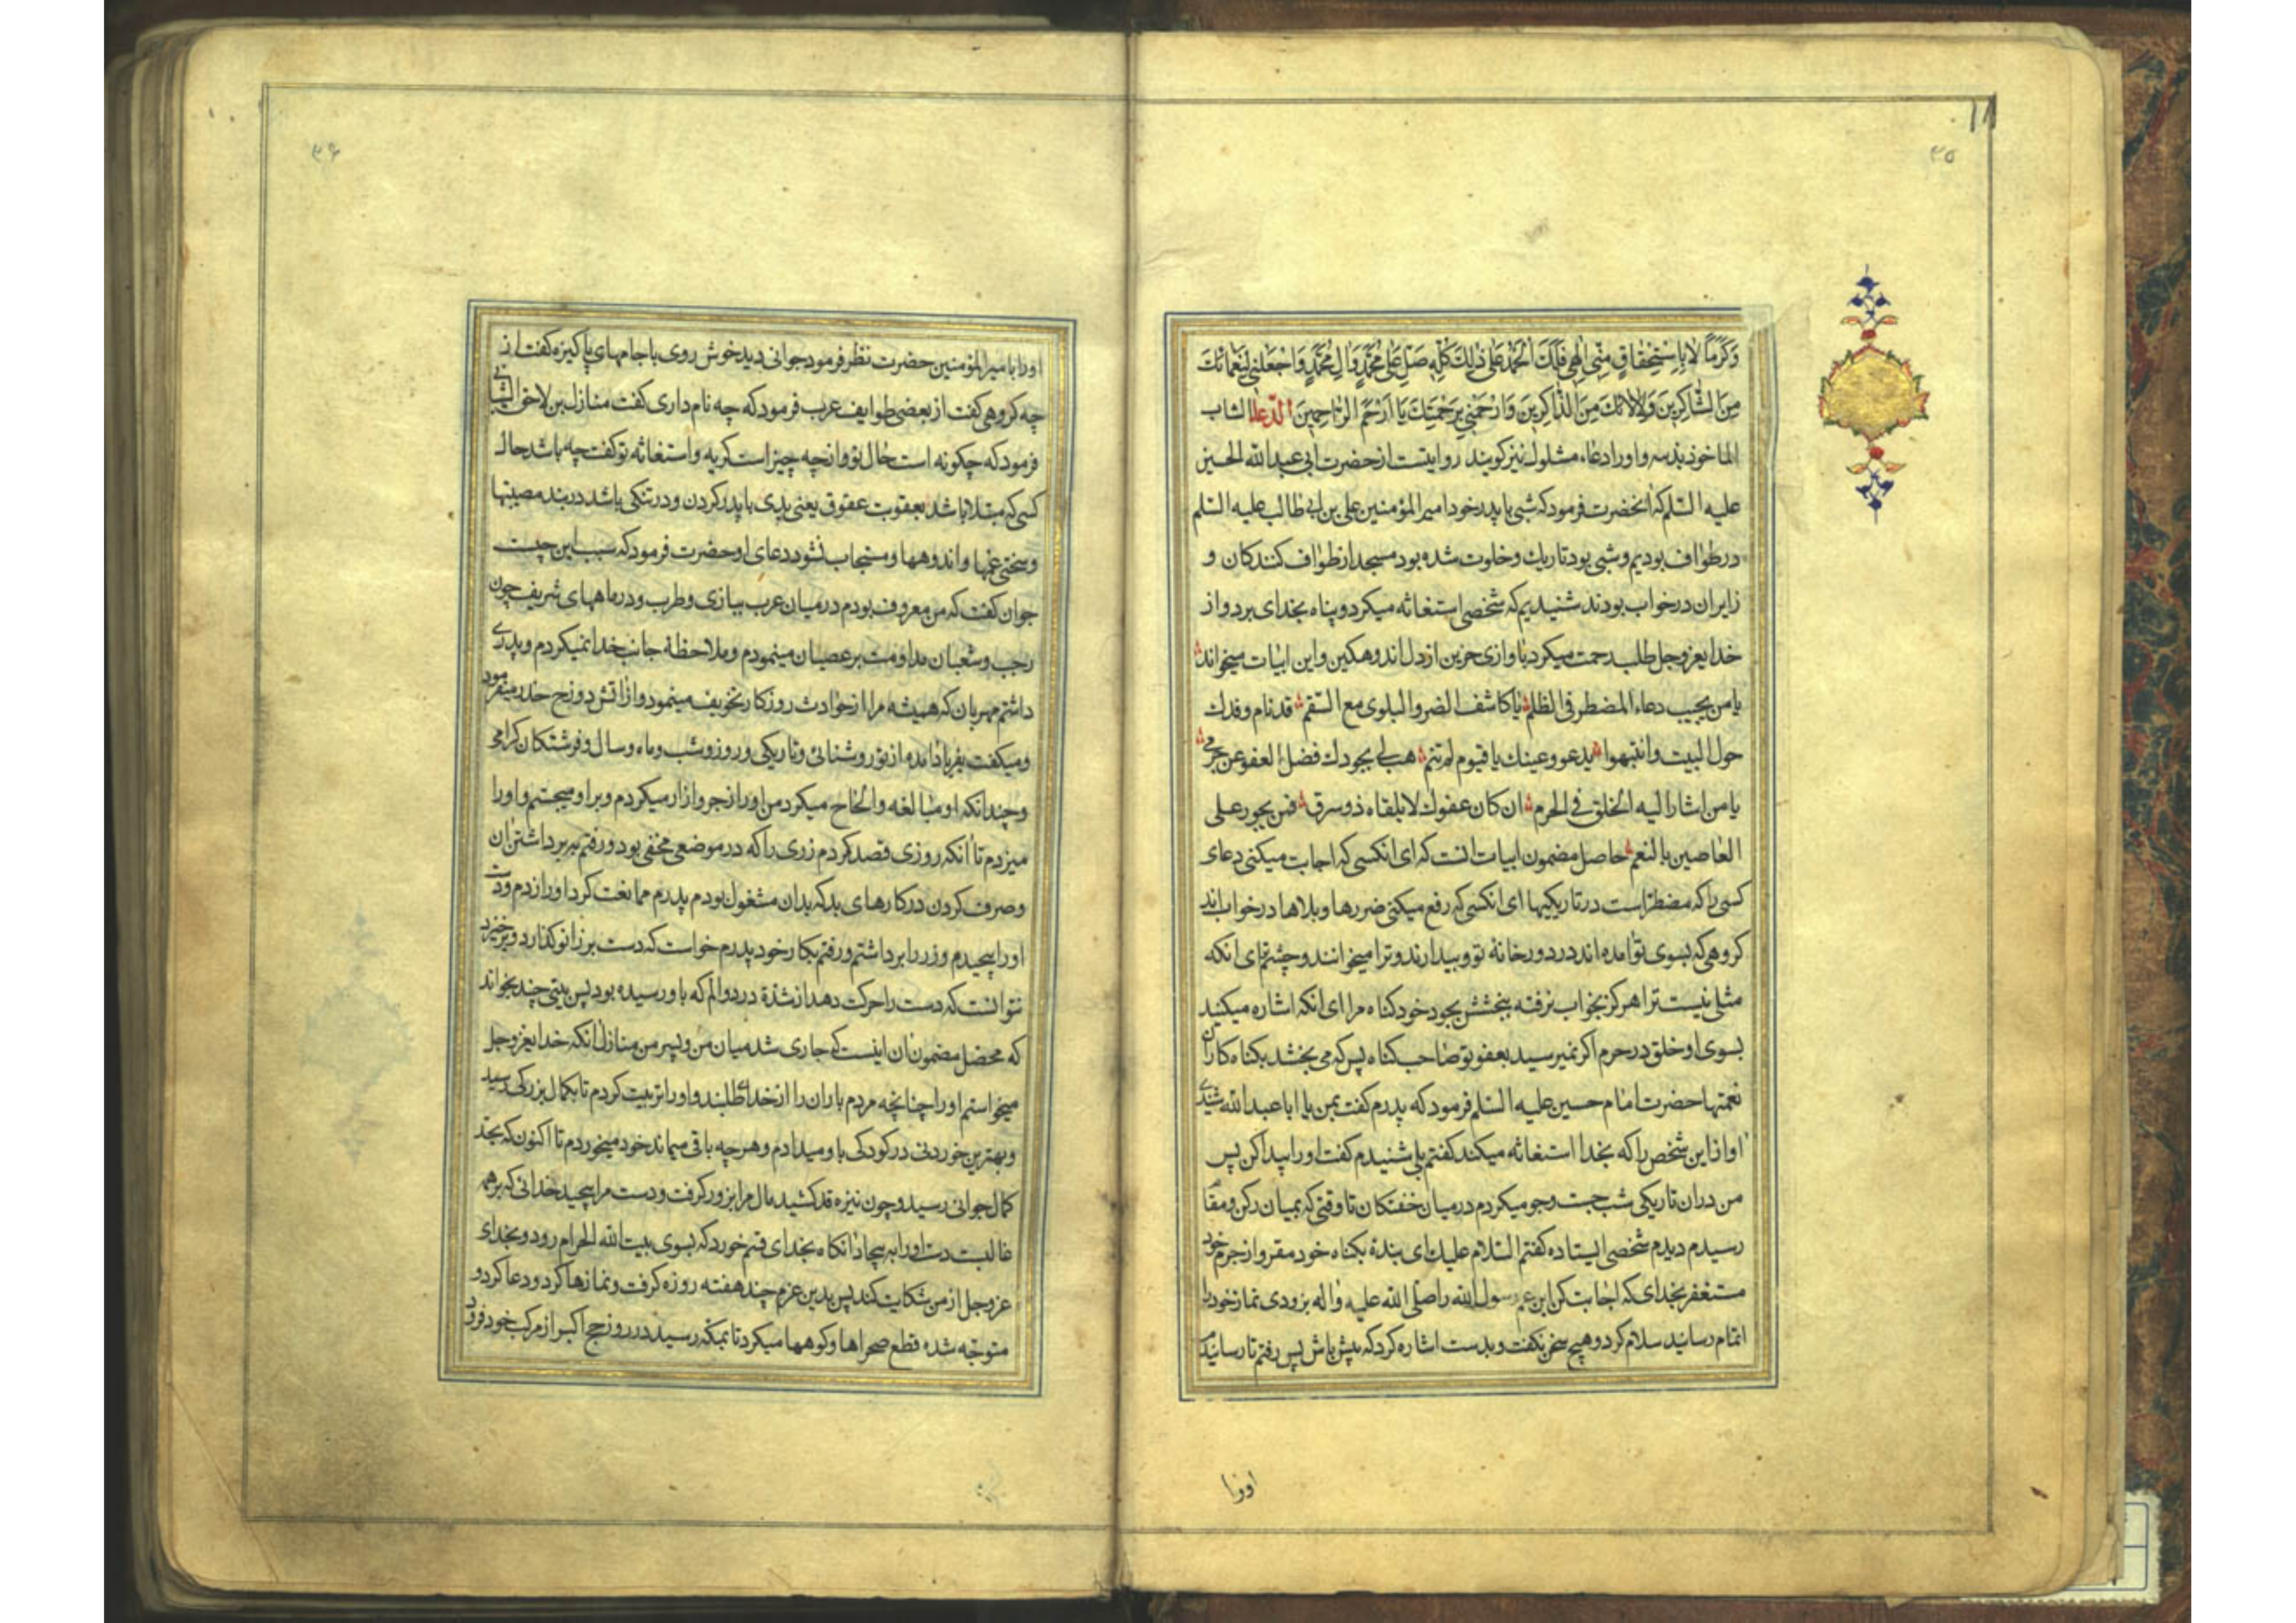 ۳۵
وَكَرَمًا لَا بِاسْتِحْقَاقٍ مِنِّي اِلٰهِي فَلَكَ الْحَمْدُ عَلٰى ذٰلِكَ كُلِّهِ صَلِّ عَلٰى مُحَمَّدٍ وَاٰلِ مُحَمَّدٍ وَاجْعَلْنِي لِنَعْمَائِكَ
مِنَ الشَّاكِرِينَ وَلِاٰلَائِكَ مِنَ الذَّاكِرِينَ وَارْحَمْنِي بِرَحْمَتِكَ يَا اَرْحَمَ الرَّاحِمِينَ الدعاء الشاب
الماخوذ بذنبه و اورا دعاء مشلول نیز کویند روایتست از حضرت ابی عبد الله الحسین
علیه السّلم که انحضرت فرمود که شبی با پدر خود امیر المؤمنین علی بن ابی طالب علیه السّلم
در طواف بودیم و شبی بود تاریك و خلوت شده بود مسجد از طواف کنندکان و
زایران در خواب بودند شنیدیم که شخصی استغاثه میکرد و پناه بخدای برد و از
خدایعز وجل طلب رحمت میکرد باوازی حزین از دل اندوهکین و این ابیات میخواند
یا من یجیب دعاء المضطر فی الظلم یا کاشف الضر و البلوی مع السّقم قد نام وفدك
حول البیت وانتبهوا یدعو وعینك یا قیوم لم تنم هب لی بجودك فضل العفو عن جرمی
یا من اشار الیه الخلق فی الحرم ان کان عفوك لا یلقاه ذو سرق فمن یجود علی
العاصین بالنعم حاصل مضمون ابیات انست که ای انکسی که اجابت میکنی دعای
کسی را که مضطر است در تاریکیها ای انکسی که رفع میکنی ضررها و بلاها در خواب اند
کروهی که بسوی تو امده اند در دور خانهٔ تو و بیدارند و ترا میخوانند و چشم ای انکه
مثل نیست ترا هرکز بخواب نرفته ببخشش بجود خود کناه مرا ای انکه اشاره میکنند
بسوی او خلق در حرم اکر نمیرسید بعفو تو صاحب کناه پس که می بخشد بکناه کاران
نعمتها حضرت امام حسین علیه السّلم فرمود که پدرم کفت بمن یا ابا عبد الله شنیدی
اواز این شخص را که بخدا استغاثه میکند کفتم بلی شنیدم کفت اورا پیدا کن پس
من دران تاریکی شب جست وجو میکردم در میان خفتکان تا وقتی که بمیان رکن و مقام
رسیدم دیدم شخصی ایستاده کفتم السّلام علیك ای بندهٔ بکناه خود مقر و از جرم خود
مستغفر بخدای که اجابت کن ابن عم رسول الله را صلی الله علیه و اله بزودی نماز خود را
اتمام رسانید سلام کرد و هیچ سخن نکفت و بدست اشاره کرد که پیش باش پس رفتم تا رسانیدم
اورا
۳۶
اورا بامیر المؤمنین حضرت نظر فرمود جوانی دید خوش روی با جامهای پاکیزه کفت از
چه کروهی کفت از بعضی طوایف عرب فرمود که چه نام داری کفت منازل بن لاحق
فرمود که چکونه است حال تو و انچه چیز است کریه و استغاثه تو کفت چه باشد حال
کسی که مبتلا باشد بعقوبت عقوق یعنی بدی با پدر کردن و در تنکی باشد در بند مصیبتها
و سختی غمها و اندوهها و مستجاب نشود دعای او حضرت فرمود که سبب این چیست
جوان کفت که من معروف بودم در میان عرب ببازی و طرب و در ماههای شریف چون
رجب و شعبان مداومت بر عصیان مینمودم و ملاحظهٔ جانب خدا نمیکردم و پدری
داشتم مهربان که همیشه مرا از حوادث روزکار تخویف مینمود و از اتش دوزخ حذر میفرمود
و میکفت بفریاد امده از تو روشنائی و تاریکی و روز و شب و ماه و سال و فرشتکان کرامی
و چندانکه او مبالغه و الحاح میکرد من اورا زجر و ازار میکردم و بر او میجستم و اورا
میزدم تا انکه روزی قصد کردم زری را که در موضعی مخفی بود و رفتم ببرداشتن ان
و صرف کردن در کارهای بد که بدان مشغول بودم پدرم ممانعت کرد اورا زدم و دست
اورا پیچیدم و زر را برداشتم و رفتم بکار خود پدرم خواست که دست بر زانو کذارد و برخیزد
نتوانست که دست را حرکت دهد از شدّة درد و الم که باو رسیده بود پس بیتی چند بخواند
که محصّل مضمون ان اینست که جاری شد میان من و پسر من منازل انکه خدایعز وجل
میخواستم اورا چنانچه مردم باران را از خدای طلبند و اورا تربیت کردم تا بکمال بزرکی رسید
و بهترین خوردنی در کودکی باو میدادم و هرچه باقی میماند خود میخوردم تا اکنون که بحد
کمال جوانی رسید و چون نیزه قد کشید مال مرا بزور کرفت و دست مرا پیچید خدائی که بر همه
غالبست دست اورا به پیچاد انکاه بخدای قسم خورد که بسوی بیت الله الحرام رود و بخدای
عز وجل از من شکایت کند پس بدین عزم چند هفته روزه کرفت و نمازها کرد و دعا کرد و
متوجّه شده قطع صحراها و کوهها میکرد تا بمکّه رسید در روز حج اکبر از مرکب خود فرود